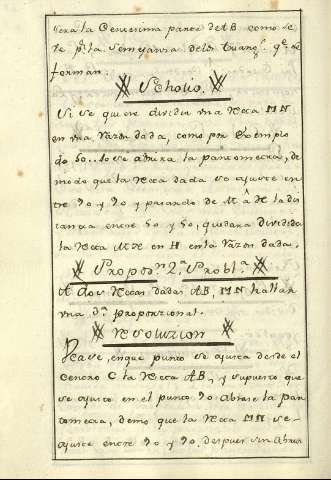 sera la Centesima parte de AB como se
be pr. la Semejansa de los triangs. qe. se
forman.
Scholio.
Si se quiere dividir vna Recta MN
en vna Razon dada, como por Exemplo
de 50.. lo se abrira la pantometra, de
modo que la Recta dada se ajuste en
tre 70 y 70 y pasando de M a H la dis
tancia entre 50 y 50, quedara dividida
la Recta MN en H en la Razon dada.
Propon. 2ª. Probla.
A dos Rectas dadas AB, MN hallar
vna 3ª. proporzional.
Resoluzion
Vease, en que punto se ajusta desde el
Centro C la Recta AB, y supuesto que
se ajusto en el punto 70 abrase la pan
tometra, de mo que la Recta MN se
ajuste entre 70 y 70. despues sin abrir